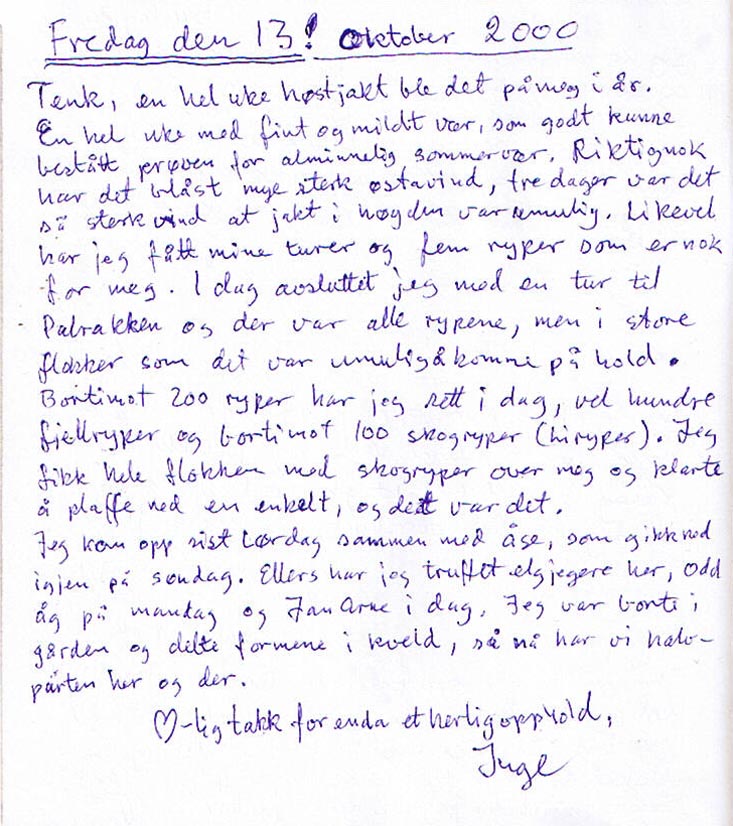 Fredag den 13! Oktober 2000
Tenk, en hel uke høstjakt ble det på meg i år.
En hel uke med fint og mildt vær, som godt kunne
bestått prøven for alminnelig sommervær. Riktignok
har det blåst mye sterk østavind, tre dager var det
så sterk vind at jakt i høyden var umulig. Likevel
har jeg fått mine turer og fem ryper som er nok
for meg. I dag avsluttet jeg med en tur til
og der var alle rypene, men i store
flokker som det var umulig å komme på hold.
Bortimot 200 ryper har jeg sett i dag, vel hundre
fjellryper og bortimot 100 skogryper (liryper). Jeg
fikk hele flokken med skogryper over meg og klarte
å plaffe ned en enkelt, og det var det.
Jeg kom opp sist Lørdag sammen med Åse, som gikk ned
igjen på søndag. Ellers har jeg truffet elgjegere her, Odd
Åg på mandag og Jan Arne i dag. Jeg var borte i
gården og delte formene i kveld, så nå har vi halv-
parten her og der.
♡-lig takk for enda et herlig opphold,
Inge